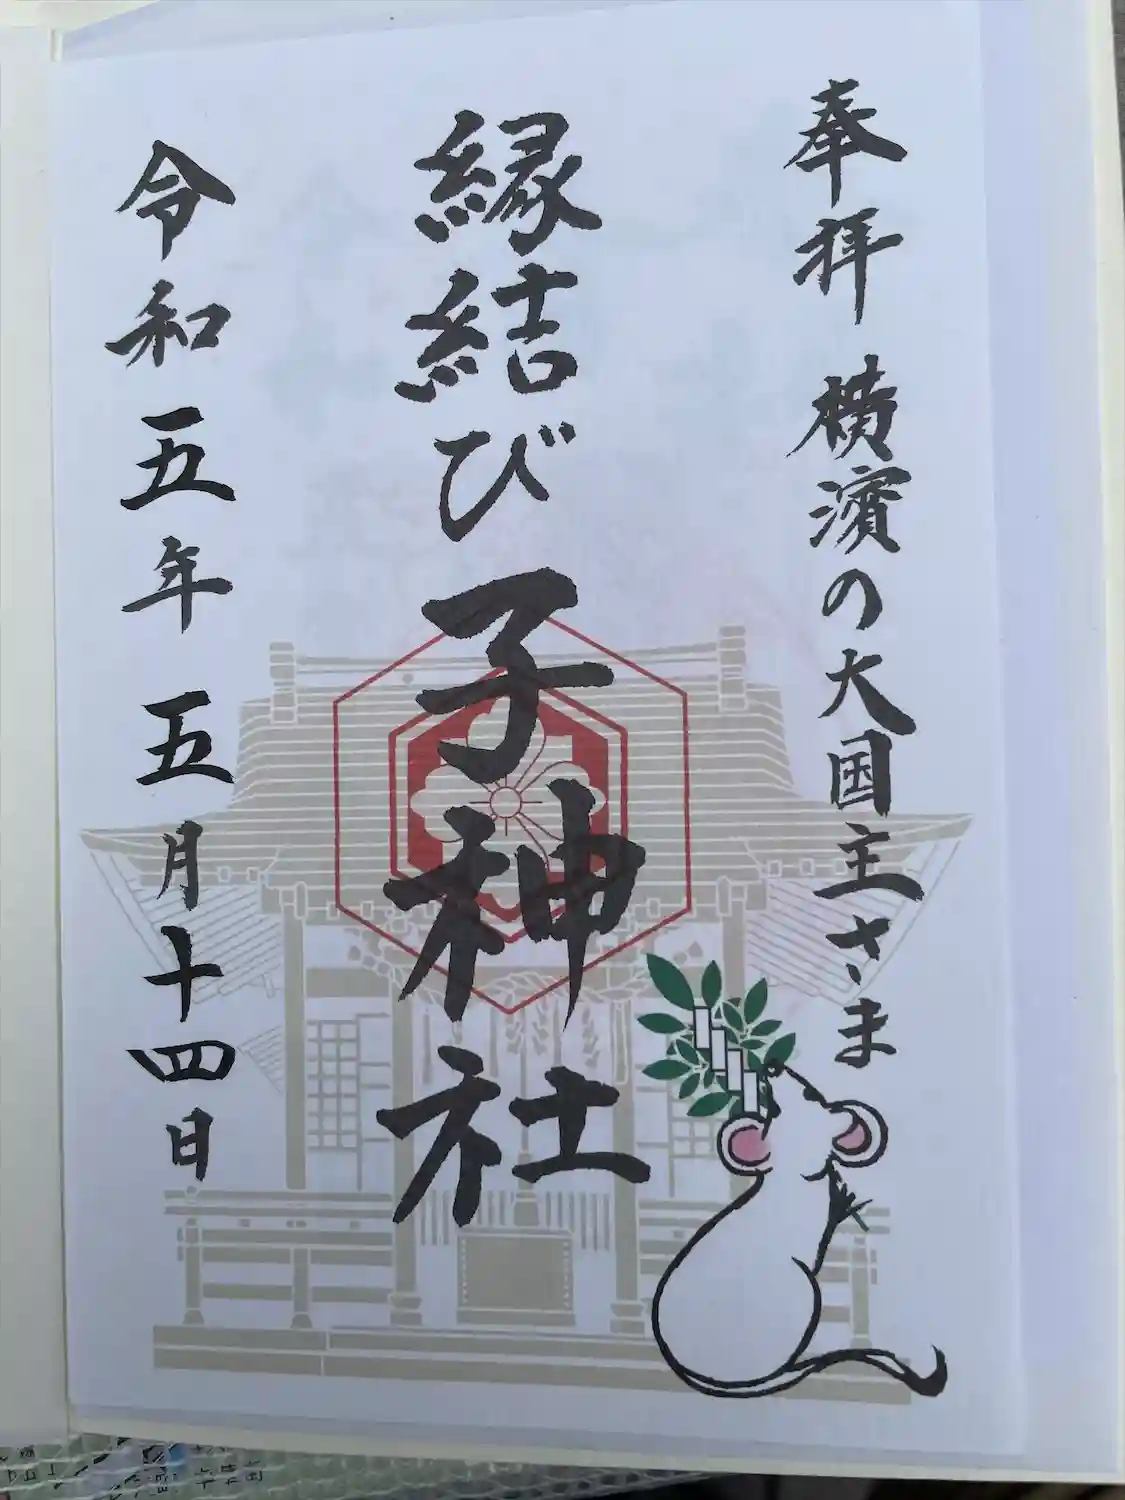 奉拝 横濱の大国主さま
縁結び 子神社
令和五年 五月十四日